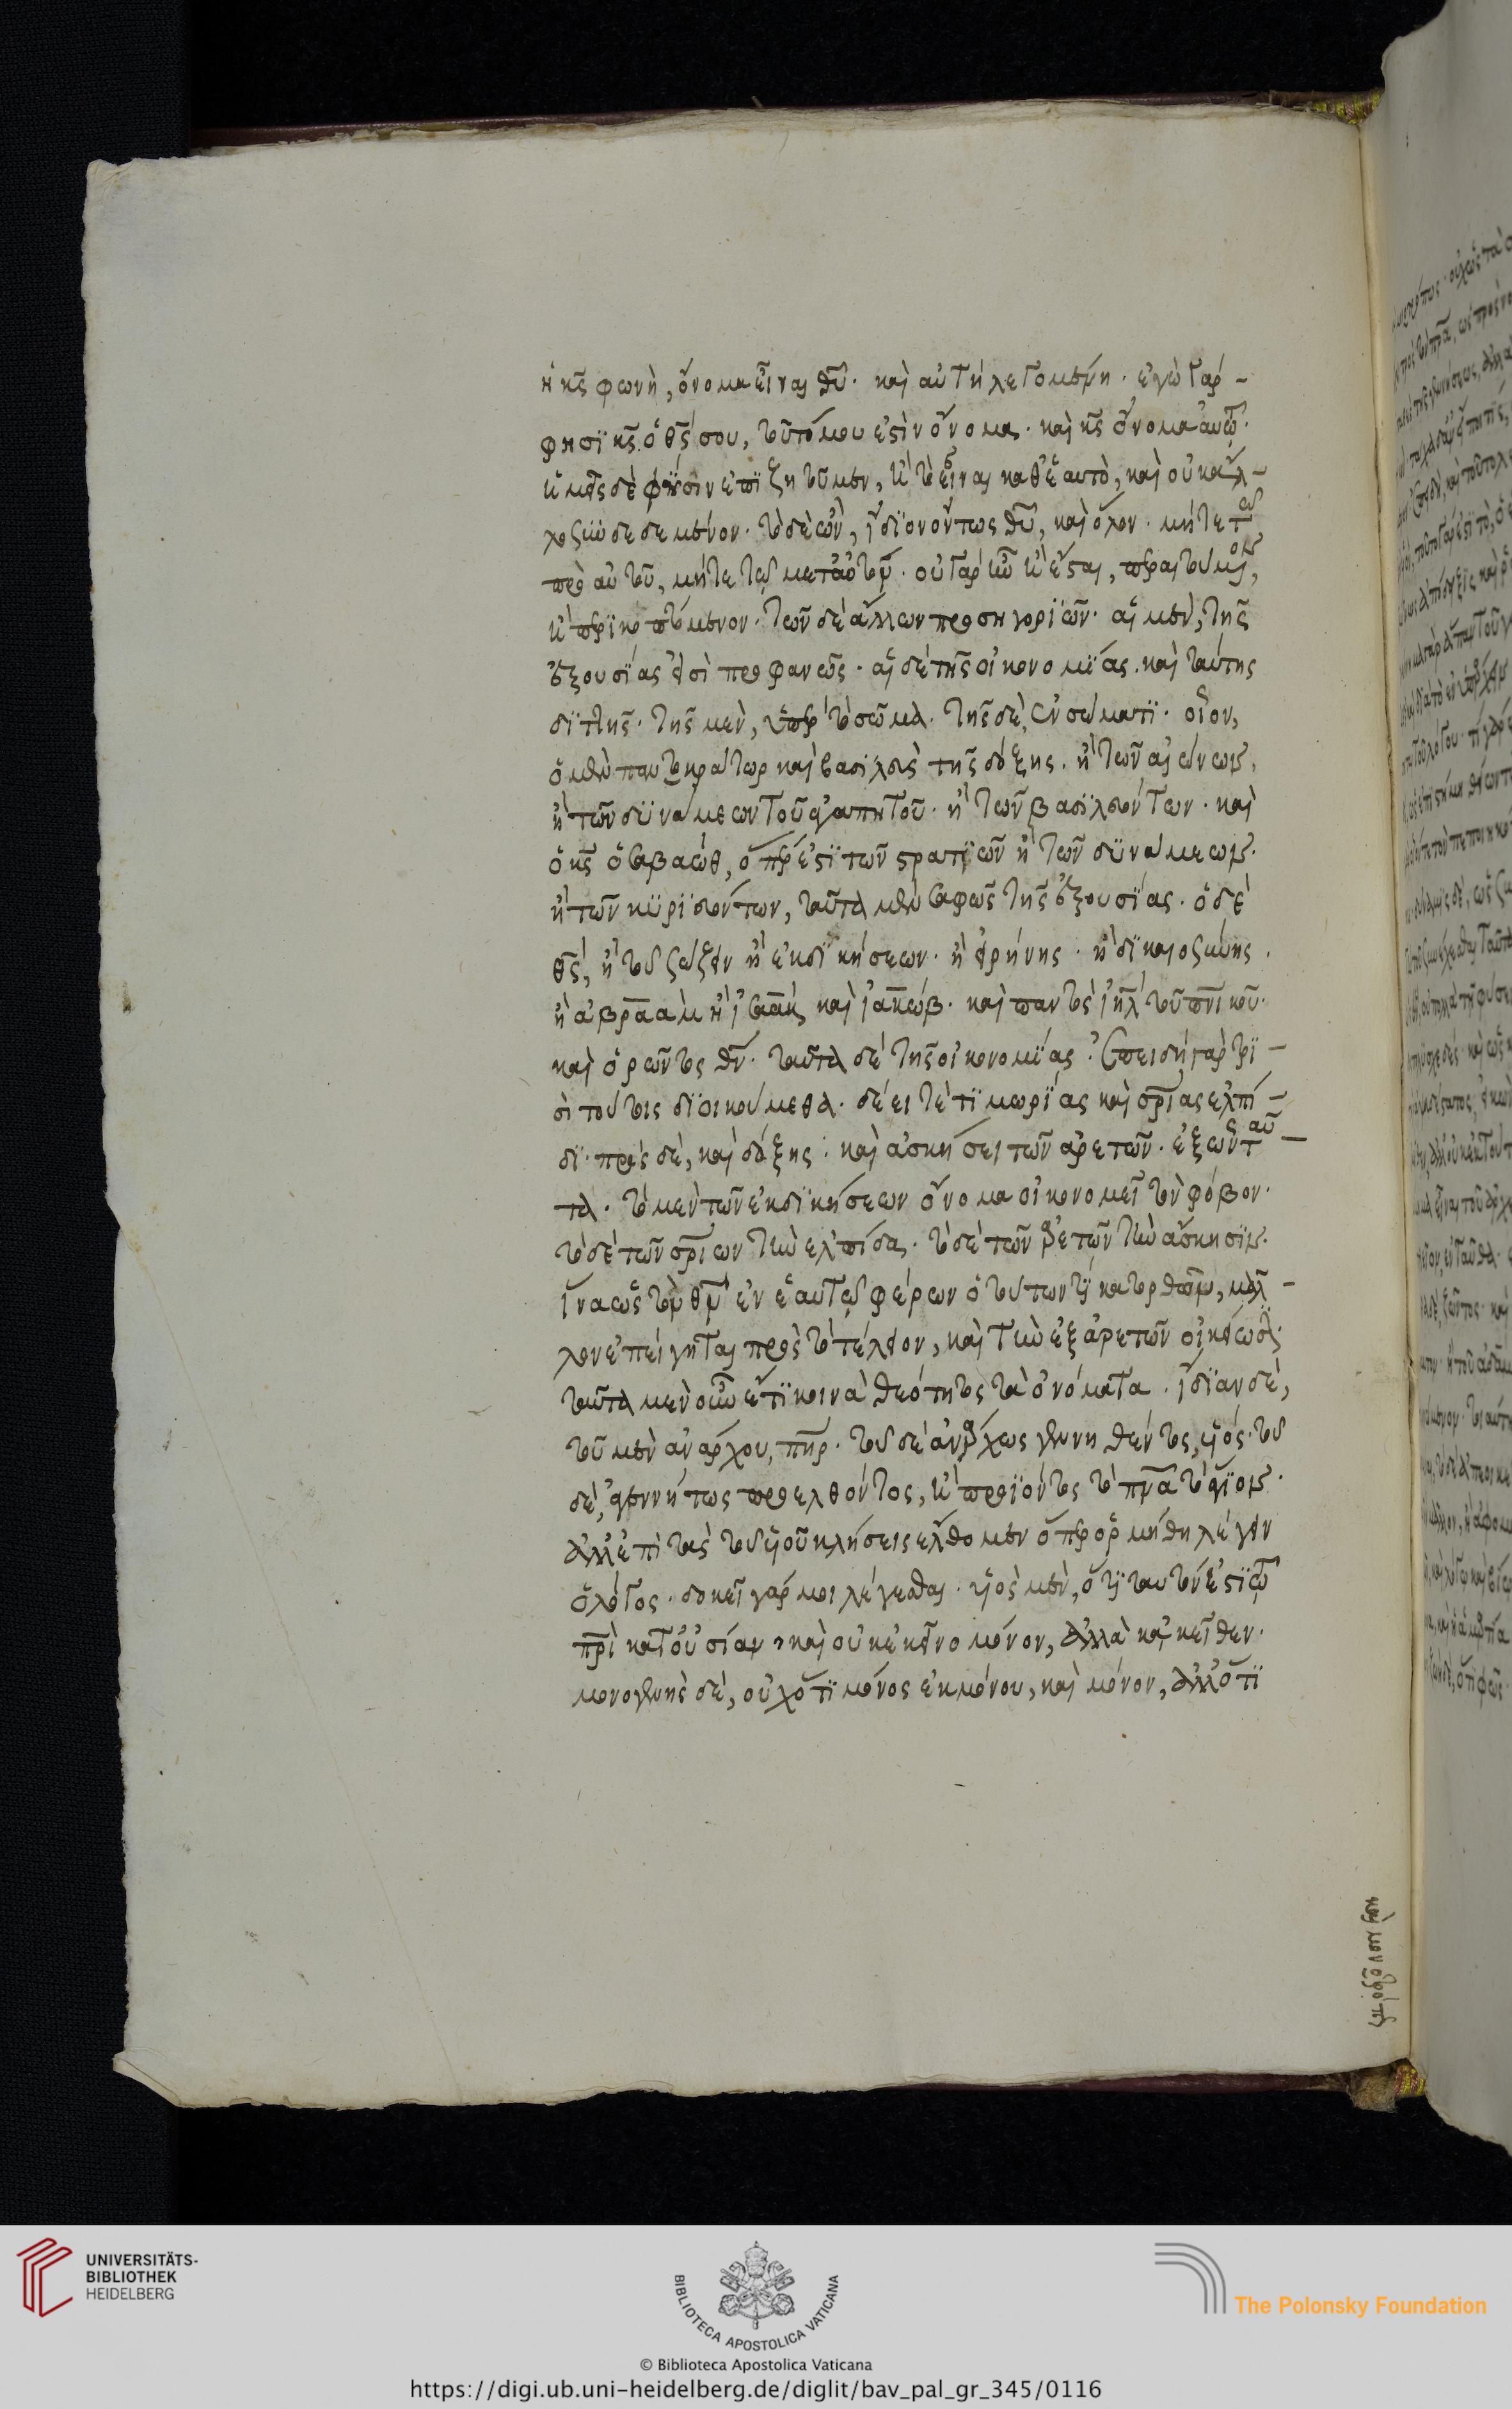 ἡ κς φωνὴ, ὄνομα εἶναι θυ. καὶ αὐτὴ λεγομένη. ἐγὼ γάρ –
φησὶ κς ὁ θς σου, τοῦτό μου ἐστὶν ὄνομα. καὶ κς ὄνομα αὐτῷ.
ἡμεῖς δὲ φύσιν ἐπιζητοῦμεν, ᾗ τὸ εἶναι καθ' ἑαυτὸ, καὶ οὐκ ἄλ–
λῳ συνδεδεμένον. τὸ δὲ ὢν, ἴδιον ὄντως θυ, καὶ ὅλον. μήτε τῷ
πρὸ αὐτοῦ, μήτε τῷ μετ' αὐτὸν. οὐ γάρ ἦν ἢ ἔσται, περατούμενον,
ἢ περικοπτόμενον. τῶν δὲ ἄλλων προσηγοριῶν. αἱ μὲν, τῆς
ἐξουσίας εἰσὶ προφανῶς. αἱ δὲ τῆς οἰκονομίας. καὶ ταύτης
διττῆς. τῆς μὲν, ὑπὲρ τὸ σῶμα. τῆς δὲ, ἐν σώματι. οἷον,
ὁ μὲν παντοκράτωρ καὶ βασιλεὺς τῆς δόξης. ἢ τῶν αἰώνων,
ἢ τῶν δυνάμεων τοῦ ἀγαπητοῦ. ἢ τῶν βασιλευόντων. καὶ
ὁ κς ὁ σαβαώθ, ὅπερ ἐστὶ τῶν στρατιῶν ἢ τῶν δυνάμεων.
ἢ τῶν κυριευόντων, ταῦτα μὲν σαφῶς τῆς ἐξουσίας. ὁ δὲ
θς, ἢ τοῦ σώζειν ἢ ἐκδικήσεων. ἢ εἰρήνης. ἢ δικαιοσύνης.
ἢ ἀβραὰμ ἢ ἰσαὰκ καὶ ἰακώβ. καὶ παντὸς ιηλ τοῦ πνικοῦ.
καὶ ὁρῶντος θν. ταῦτα δὲ τῆς οἰκονομίας. Ἐπειδὴ γὰρ τρι–
σὶ τούτοις διοικούμεθα. δέει τὲ τιμωρίας καὶ σρίας ἐλπί–
δι. πρὸς δὲ, καὶ δόξης. καὶ ἀσκήσει τῶν ἀρετῶν. ἐξ ὧν ταῦ–
τα. τὸ μὲν τῶν ἐκδικήσεων ὄνομα οἰκονομεῖ τὸν φόβον.
τὸ δὲ τῶν σριων τὴν ἐλπίδα. τὸ δὲ τῶν ἀρετῶν τὴν ἄσκησιν.
ἵνα ὡς τὸν θν ἐν ἑαυτῷ φέρων ὁ τούτων τι κατορθῶν, μᾶλ–
λον ἐπείγηται πρὸς τὸ τέλειον, καὶ τὴν ἐξ ἀρετῶν οἰκείωσιν.
ταῦτα μὲν οὖν ἔτι κοινὰ θεότητος τὰ ὀνόματα. ἴδιον δὲ,
τοῦ μὲν ἀνάρχου, πηρ. τοῦ δὲ ἀνάρχως γεννηθέντος, υἱός. τοῦ
δὲ, ἀγεννήτως προελθόντος, ἢ προϊόντος τὸ πνα τὸ ἅγιον.
ἀλλ' ἐπὶ τὰς τοῦ υἱοῦ κλήσεις ἔλθομεν ὅπερ ὁρμήθη λέγειν
ὁ λόγος. δοκεῖ γάρ μοι λέγεσθαι. υἱὸς μὲν, ὅτι ταυτόν ἐστι τῷ
πρὶ κατ' οὐσίαν, καὶ οὐκ ἐκεῖνο μόνον, ἀλλὰ κἀκεῖθεν.
μονογενὴς δὲ, οὐχ ὅτι μόνος ἐκ μόνου, καὶ μόνον, ἀλλ' ὅτι
UNIVERSITÄTS-
BIBLIOTHEK
HEIDELBERG
BIBLIOTECA APOSTOLICA VATICANA
© Biblioteca Apostolica Vaticana
The Polonsky Foundation
https://digi.ub.uni-heidelberg.de/diglit/bav_pal_gr_345/0116